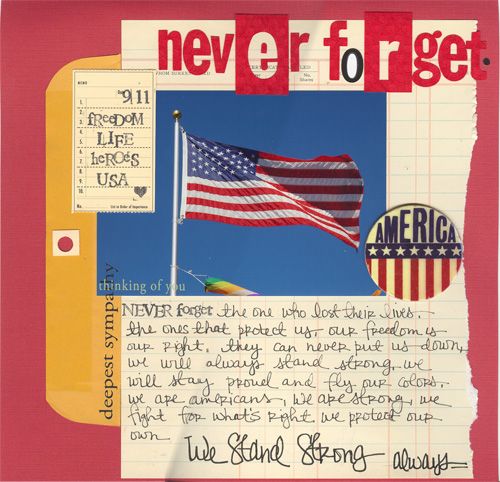 never forget.
No.
Shares
MEMO
9|11
freeDOM
LIFE
heroes
USA
No.
List in Order of Importance
AMERICA
thinking of you
deepest sympathy
NEVER forget the one who lost their lives.
the ones that protect us, our freedom is
our right. they can never put us down,
we will always stand strong, we
will stay proud and fly our colors.
we are americans, we are strong, we
fight for what's right we protect our
own
We Stand Strong always